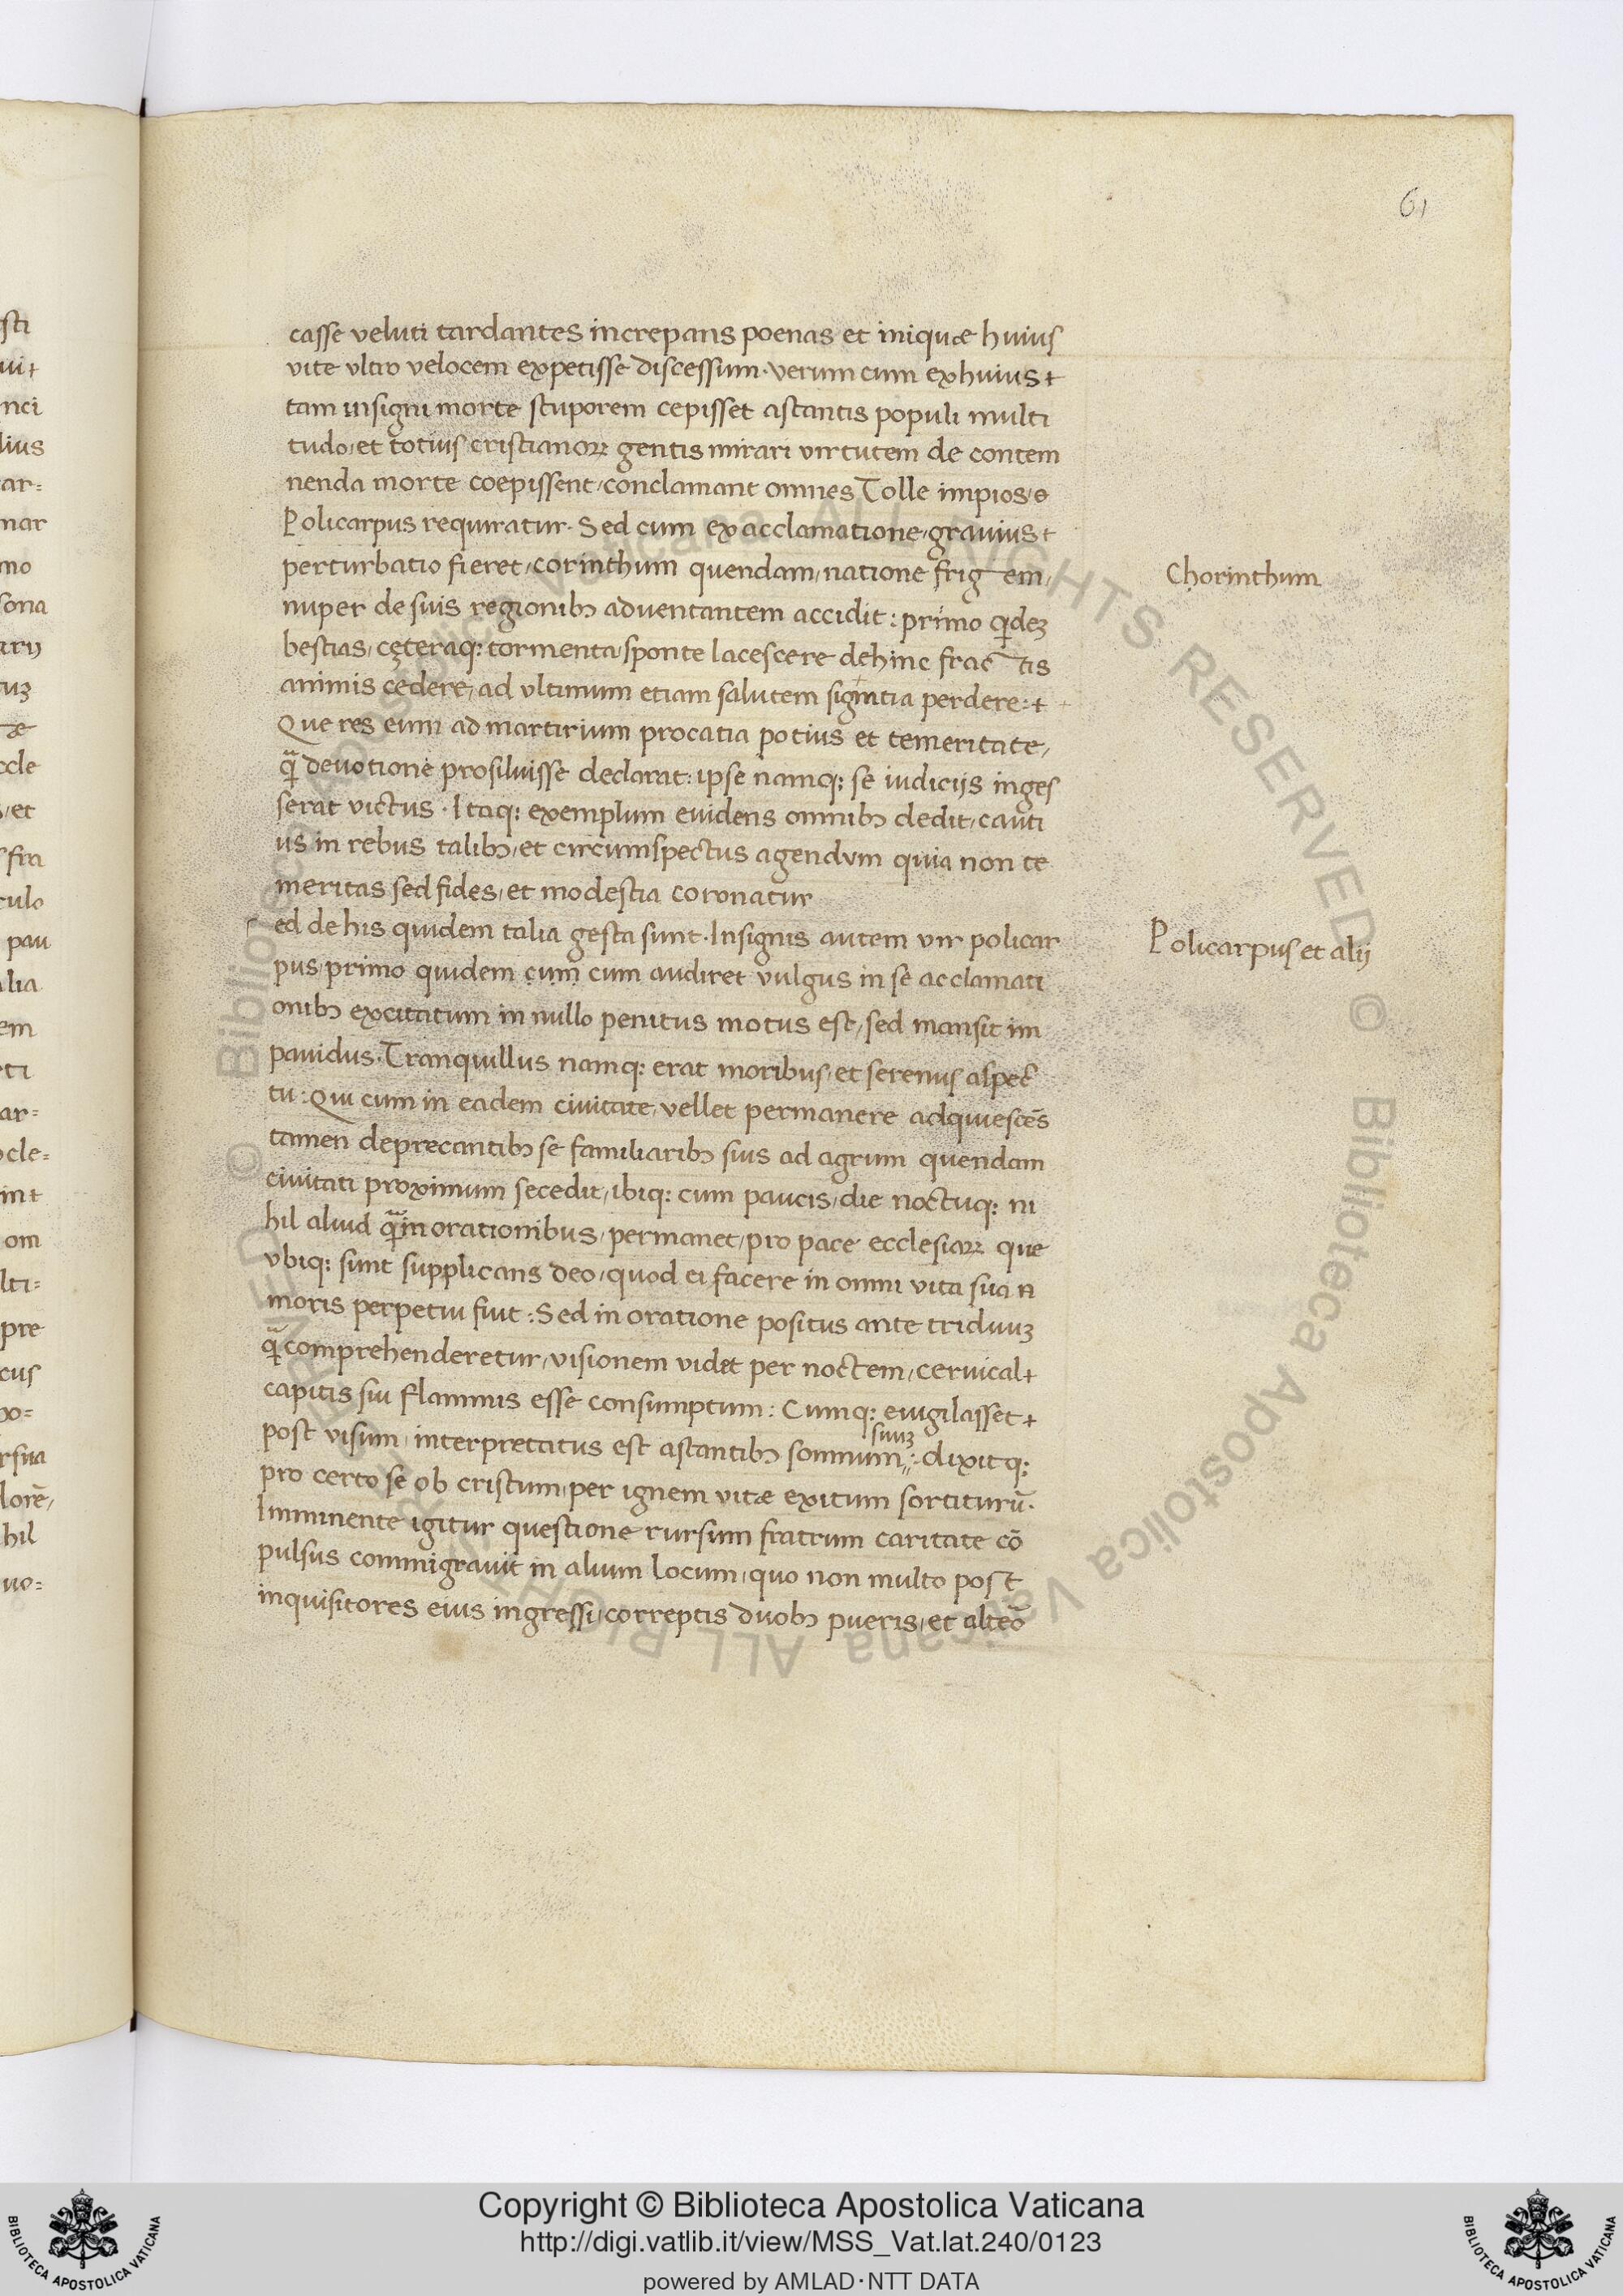 61
casse veluti tardantes increpans poenas et iniquæ huius
vite ultro velocem expetisse discessum. verum cum ex huius +
tam insigni morte stuporem cepisset astantis populi multi
tudo, et totius cristianoꝝ gentis mirari virtutem de contem
nenda morte coepissent, conclamant omnes Tolle impios, e
Policarpus requiratur. Sed cum ex acclamatione, gravius +
perturbatio fieret, corinthum quendam, natione frig em,
Chorinthum
nuper de suis regionibꝫ adventantem accidit: primo qͥdeꝫ
bestias, cęteraqꝫ tormenta sponte lacescere dehinc frac tis
animis cedere, ad ultimum etiam salutem signitia perdere: +
Que res eum ad martirium procatia potius et temeritate,
qͣ devotione prosiluisse declarat: ipse namqꝫ se iudiciis inges
serat victus. Itaqꝫ exemplum evidens omnibꝫ dedit, cauti
us in rebus talibꝫ, et circumspectus agendum quia non te
meritas sed fides, et modestia coronatur
ed de his quidem talia gesta sunt. Insignis autem vir policar
Policarpus et alij
pus, primo quidem cum cum audiret vulgus in se acclamati
onibꝫ excitatum in nullo penitus motus est, sed mansit im
pavidus. Tranquillus namqꝫ erat moribus, et serenus aspec
tu: Qui cum in eadem civitate, vellet permanere adquiescēs
tamen deprecantibꝫ se familiaribꝫ suis ad agrum quendam
civitati proximum secedit, ibiqꝫ cum paucis, die noctuqꝫ ni
hil aliud qͣ in orationibus, permanet, pro pace ecclesiaꝝ que
ubiqꝫ sunt supplicans deo, quod ei facere in omni vita sua n
moris perpetui fuit: Sed in oratione positus ante triduuꝫ
qͣ comprehenderetur, visionem videt per noctem, cervical +
capitis sui flammis esse consumptum: Cumqꝫ evigilasset +
suuꝫ
post visum, interpretatus est astantibꝫ somnum: dixitqꝫ
pro certo se ob cristum, per ignem vitæ exitum sortiturū.
Imminente igitur questione rursum fratrum caritate cō
pulsus commigravit in alium locum, quo non multo post
inquisitores eius ingressi, correptis duobꝫ pueris, et alteō
© Biblioteca Apostolica Vaticana ALL RIGHTS RESERVED
Copyright © Biblioteca Apostolica Vaticana
http://digi.vatlib.it/view/MSS_Vat.lat.240/0123
powered by AMLAD·NTT DATA
BIBLIOTECA APOSTOLICA VATICANA
BIBLIOTECA APOSTOLICA VATICANA